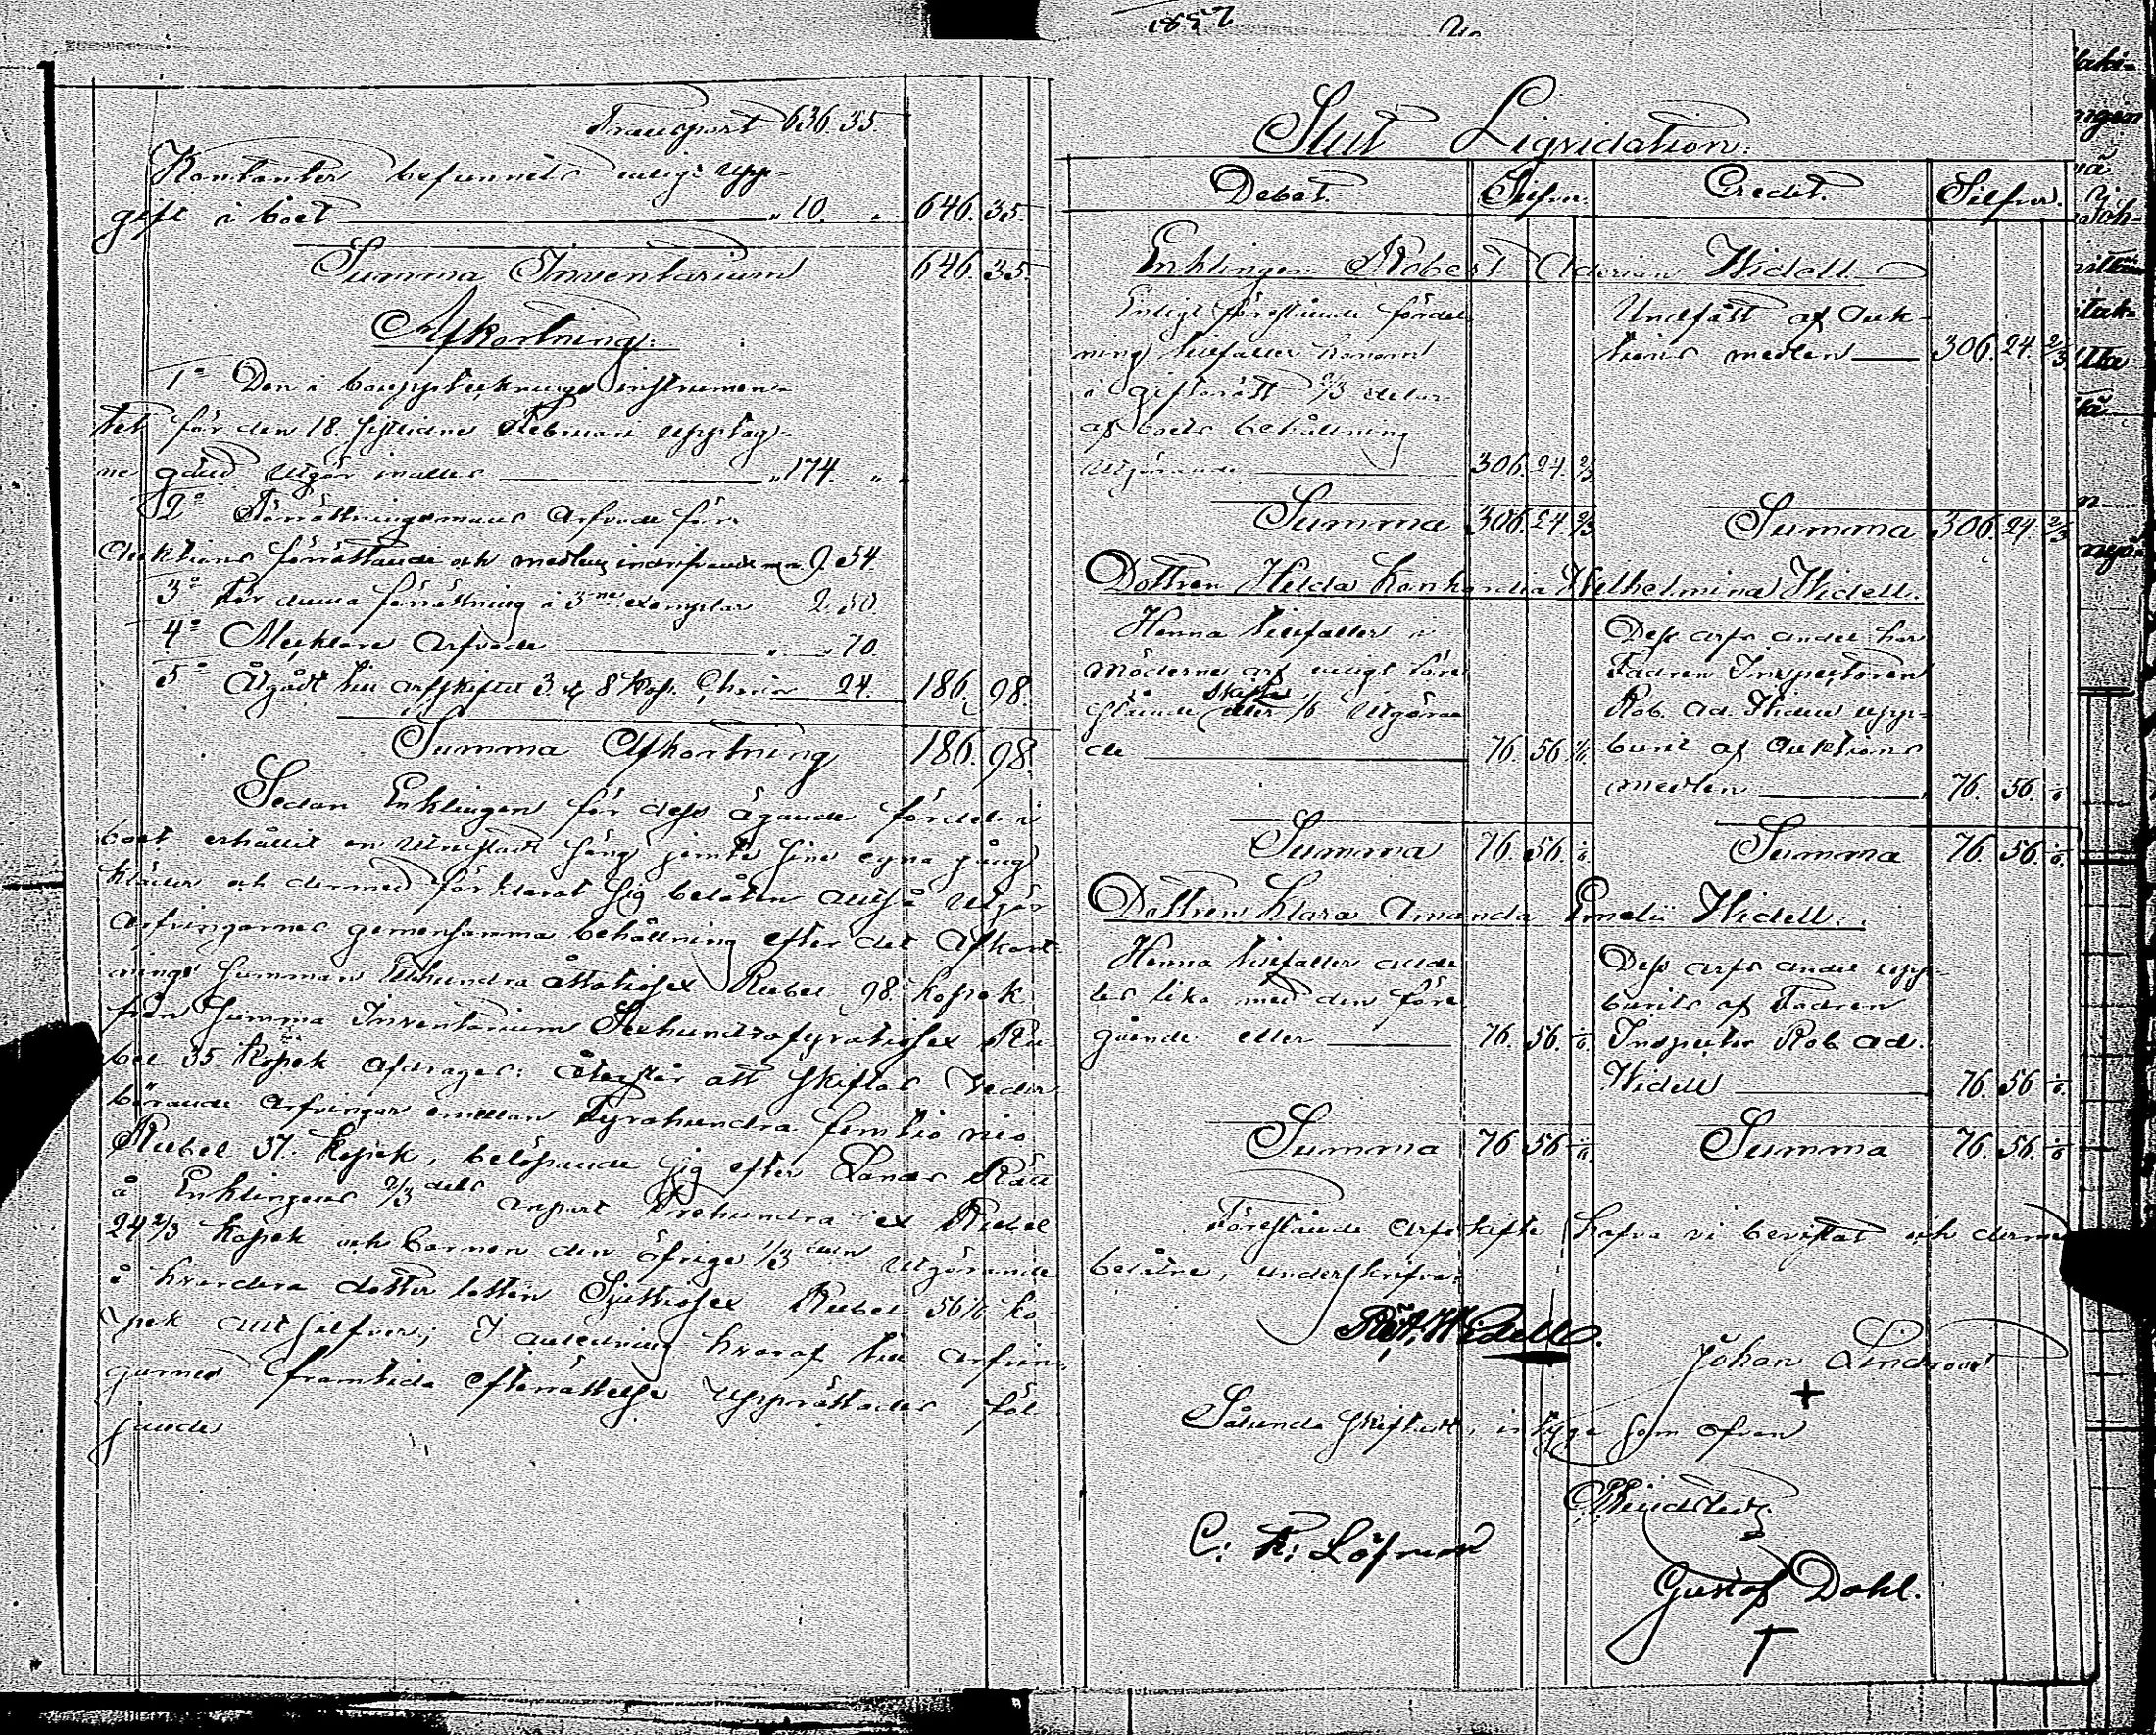 1857
Transport 636. 35.
Kontanter befunnets enligt upp-
gift i boet „ 10. „ 646. 35.
Summa Inventarium 646. 35.
Afkortning.
1º Den i bouppteknings instrumen-
tet för den 18 sistledne Februari upptag-
ne gäld utgör inalles „ 174. „ „
2º Förrättningsmans Arfvode för
Auktions förrättande och medlens indrifvande 9. 54.
3º För denna förrättning i 3ne exemplar 2. 50
4º Mäklare Arfvode „ „ 70.
5º Åtgådt till arfskiftet 3 8 kop. Charta 24. 186. 98.
Summa Afkortning 186. 98.
Sedan Enklingen för dess ägande fördel i
boet erhållit en säng jemte sine egna gång
kläder och dermed förklarat sig belåten altså utgör
Arfvingarnes gemensamma behållning efter det Afkort-
nings summan Etthundra åttatiosex Rubel 98 kopek
från Summa Inventarium Sexhundrafyratiosex Ru-
bel 35 kopek afdrages: Återstår att skiftas veder-
börande Arfvingar emellan Fyrahundra femtio nio
Rubel 37. kopek, belöpande sig efter Lands Rätt
å Enklingens 2/3 dels anpart Trehundra sex Rubel
24 2/3 kopek och barnen den öfriga 1/3 delen utgörande
å hvardera dotter lotten Sjuttiosex Rubel 56 1/6 ko-
pek allt silfver; I anledning hvaraf till arfvin-
garnes framtida efterrättelse upprättades föl-
jande
Slut Liqvidation.
Debet. Silfver. Credit. Silfver.
Enklingen Robert Adrian Widell
Enligt föreståenide fördel-
ning tillfaller honom
i giftorätt 2/3 delar
af boets behållning
utgörande 306. 24. 2/3
Undfått af Auk-
tions medlen 306. 24. 2/3
Summa 306. 24. 2/3 Summa 306. 24. 2/3
Dottren Hilda Konkordia Wilhelmina Widell.
Henna tillfaller i
möderne arf enligt före
stående skifte 1/6 utgöran-
de 76. 56 1/6.
Dess arfs andel har
Fadren Inspectoren
Rob. Ad. Widell upp-
burit af auktions
medlen 76. 56. 1/6
Summa 76. 56. 1/6 Summa 76. 56. 1/6
Dottren Klara Amanda Emelii Widell.
Henna tillfaller alde-
les lika med den före
gående eller 76. 56. 1/6.
Dess arfs andel upp-
burits af Fadren
Inspector Rob. Ad.
Widell 76. 56 1/6.
Summa 76 56 1/6 Summa 76. 56. 1/6
Förestående Arfskifte hafva vi bevistat och dermed
belåtne, underskrifva:
Rob. A. Widell.
Johan Lindroos
+
Sålunda skiftadt, intyga som ofvan
C: R: Löfman
Gustaf Dahl.